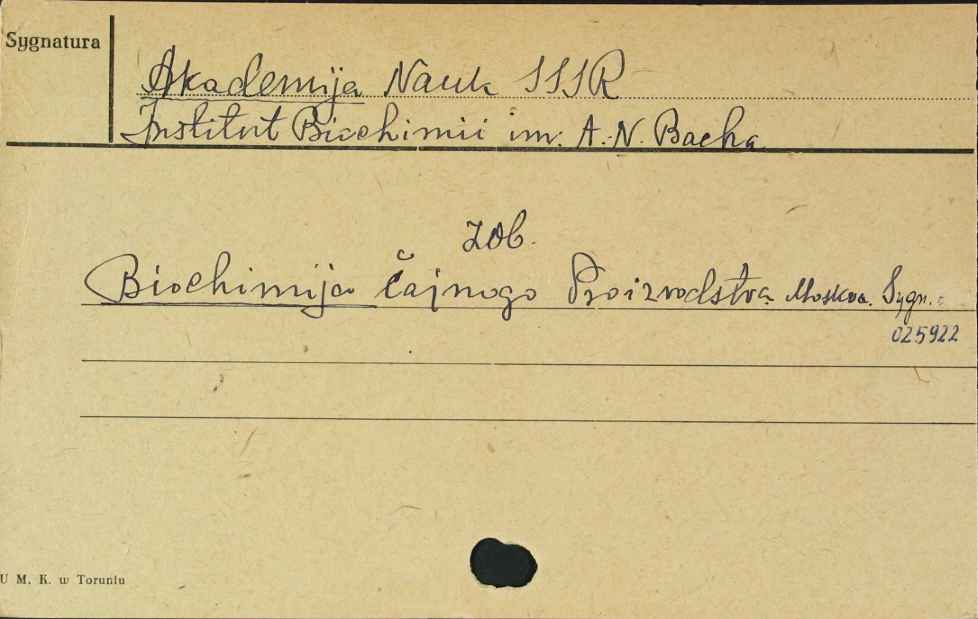 Sygnatura
Akademija Nauk SSSR
Institut Biochimii im. A. N. Bacha
zob.
Biochimija čajnogo Proizvodstva Moskva. Sygn.:
025922
U M. K. w Toruniu